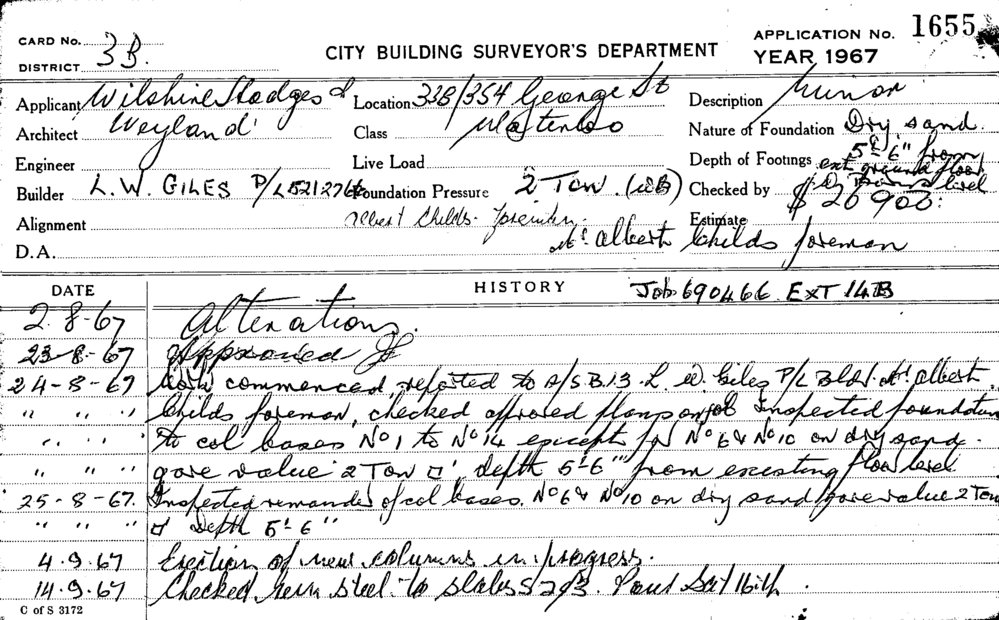 CARD No. 3B.
DISTRICT
CITY BUILDING SURVEYOR'S DEPARTMENT
APPLICATION No. 1655
YEAR 1967
Applicant Wilshire Hodges &
Location 328/354 George St
Description Minor
Architect Weyland
Class Waterloo
Nature of Foundation Dry sand.
Engineer
Live Load
Depth of Footings 5'-6" from
ext ground floor level
Builder L.W. GILES P/L
Foundation Pressure 2 Ton.
Checked by
$ 20 900:
Alignment Albert Childs. foreman.
Estimate
D.A. Mr. Albert Childs foreman
DATE
HISTORY Job 690466 EXT 14B
2.8-67 Alterations.
23-8-67 Approved
24-8-67 Work commenced, reported to A/S.B.I.3. L. W. Giles P/L Bldr. Mr. Albert.
" " " Childs foreman, checked approved plans on job Inspected foundation
" " " to col bases No 1 to No 14 except for No 6 & No 10 on dry sand.
" " " gave value 2 Ton □' depth 5'-6" from existing floor level
25-8-67. Inspected remainder of col bases. No 6 & No 10 on dry sand gave value 2 Ton
" " " □' depth 5'-6"
4.9.67 Erection of new columns in progress.
14.9.67 Checked rein steel to slabs Pour Sat 16th
C of S 3172